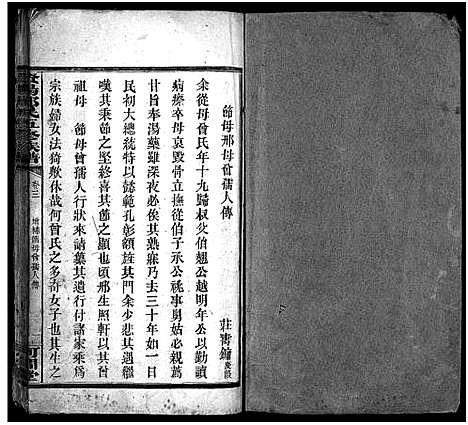 節母邢母曾孺人傳
莊壽鏞
余從母曾氏年十九歸叔父伯翹公越明年公以勤讀
病瘵卒母哀毀骨立撫從伯子承公祧事舅姑必親薦
甘旨奉湯藥雖深夜必俟其熟寐乃去三十年如一日
民初大總統特以懿範孔彰額旌其門余少悲其遇繼
嘆其秉節之堅終喜其節之顯也頃邢生照軒以其
祖母　節母曾孺人行狀來請纂其遺行付諸家乘為
宗族婦女法猗歟休哉何曾氏之多奇女子也其生之
卷三
增補節母曾孺人傳